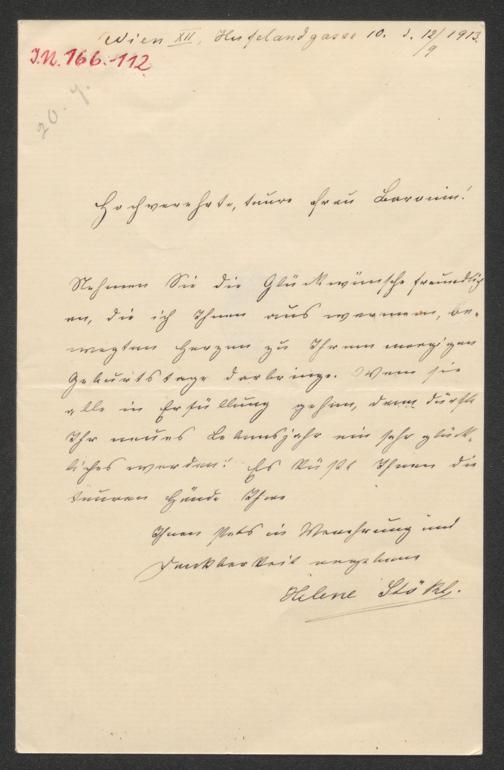 Wien XII, Hufelandgasse 10. d. 12/9 1913.
I.N. 166.-112
20. 9.
Hochverehrte, teure Frau Baronin!
Nehmen Sie die Glückwünsche freundlich
an, die ich Ihnen aus warmem, be-
wegten Herzen zu Ihrem morgigen
Geburtstage darbringe. Wenn sie
alle in Erfüllung gehen, dann dürfte
Ihr neues Lebensjahr ein sehr glück-
liches werden! Es küßt Ihnen die
teuren Hände Ihre
Ihnen stets in Verehrung und
Dankbarkeit ergebene
Helene Stökl.